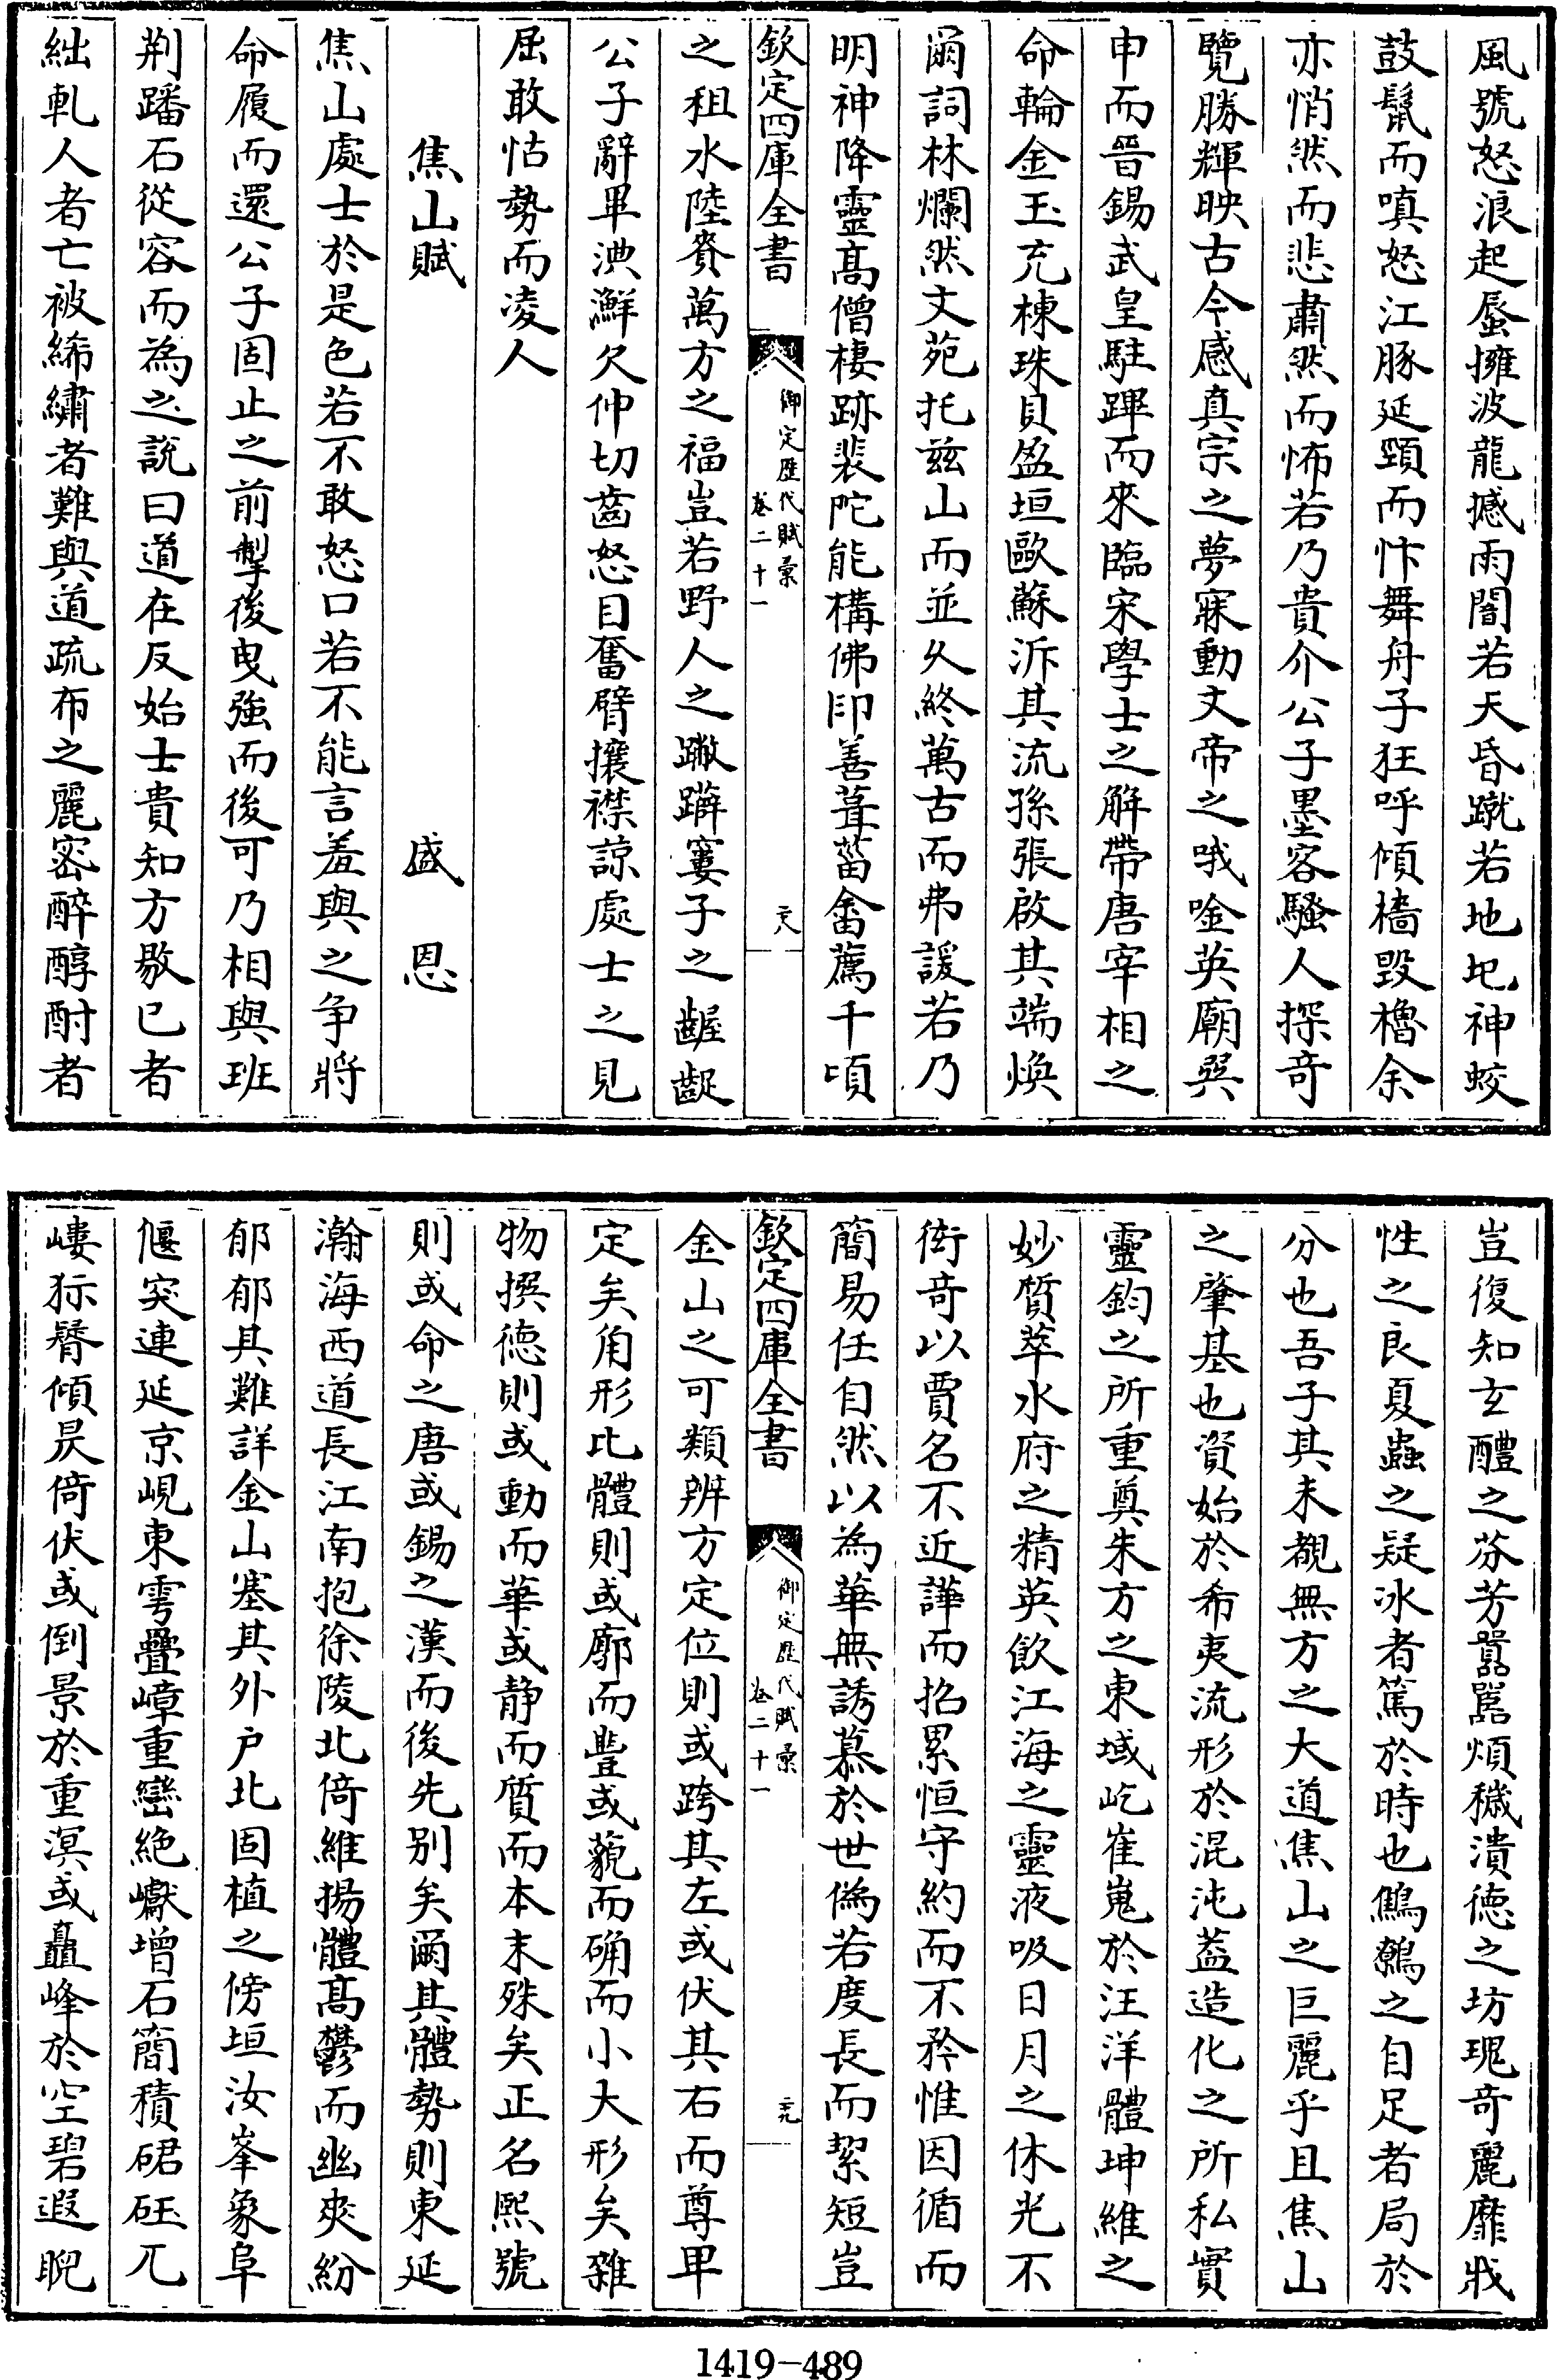 風號怒浪起蜃擁波龍撼雨闇若天昏蹴若地圮神蛟
鼓鬣而嗔怒江豚延頸而忭舞舟子狂呼傾檣毀櫓余
亦悄然而悲肅然而怖若乃貴介公子墨客騷人探奇
覽勝輝映古今感真宗之夢寐動文帝之哦唫英廟巺
申而晉錫武皇駐蹕而來臨宋學士之解帶唐宰相之
命輪金玉充棟珠貝盈垣歐蘇泝其流孫張啟其端煥
爾詞林爛然文苑托兹山而並久終萬古而弗諼若乃
明神降靈髙僧棲跡裴陀能構佛印善葺菑畬薦千頃
欽定四庫全書
御定歴代賦彙
卷二十一
二十八
之租水陸賚萬方之福豈若野人之蹩躃窶子之齷齪
公子辭畢淟鮮欠伸切齒怒目奮臂攘襟諒處士之見
屈敢怙勢而凌人
焦山賦
盛恩
焦山處士於是色若不敢怒口若不能言羞與之争將
命履而還公子固止之前掣後曳強而後可乃相與班
荆蹯石從容而為之說曰道在反始士貴知方敭已者
絀軋人者亡被絺繡者難與道疏布之麗密醉醇酎者
豈復知玄醴之芬芳嚣嚣煩穢潰徳之坊瑰奇麗靡戕
性之良夏蟲之疑冰者篤於時也鷦鷯之自足者局於
分也吾子其未覩無方之大道焦山之巨麗乎且焦山
之肇基也資始於希夷流形於混沌葢造化之所私實
靈鈞之所重奠朱方之東域屹崔嵬於汪洋體坤維之
妙質萃水府之精英飲江海之靈液吸日月之休光不
衒奇以賈名不近譁而招累恒守約而不矜惟因循而
簡易任自然以為華無誘慕於世偽若度長而絜短豈
欽定四庫全書
御定歴代賦彙
卷二十一
二十九
金山之可類辨方定位則或跨其左或伏其右而尊卑
定矣角形比體則或廓而豐或藐而确而小大形矣雜
物撰徳則或動而華或静而質而本末殊矣正名熙號
則或命之唐或錫之漢而後先别矣爾其體勢則東延
瀚海西道長江南抱徐陵北倚維揚體髙鬱而幽夾紛
郁郁其難詳金山塞其外户北固植之傍垣汝峯象阜
偃突連延京峴東雩疊嶂重巒絶巘增石簡積硱砡兀
嶁狋膋傾昃倚伏或倒景於重溟或矗峰於空碧遐睨
1419-489